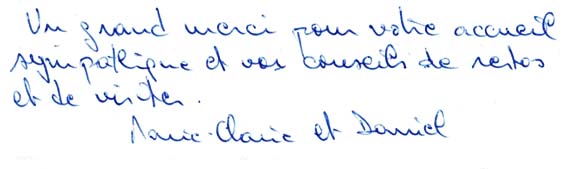 Un grand merci pour votre accueil
sympathique et vos conseils de restos
et de visites.
Marie-Claire et Daniel